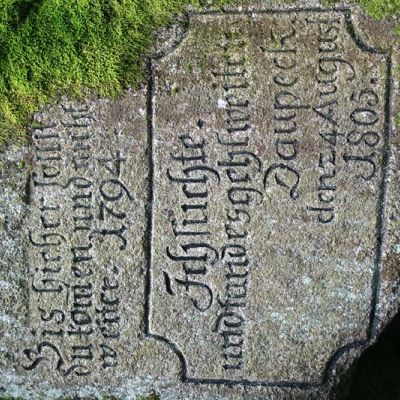 Bis hieher sollst
du komen, und nicht
weiter. 1794
Ich suchte.
und fand es geht weiter
Daupeck.
den 24 August
1805.